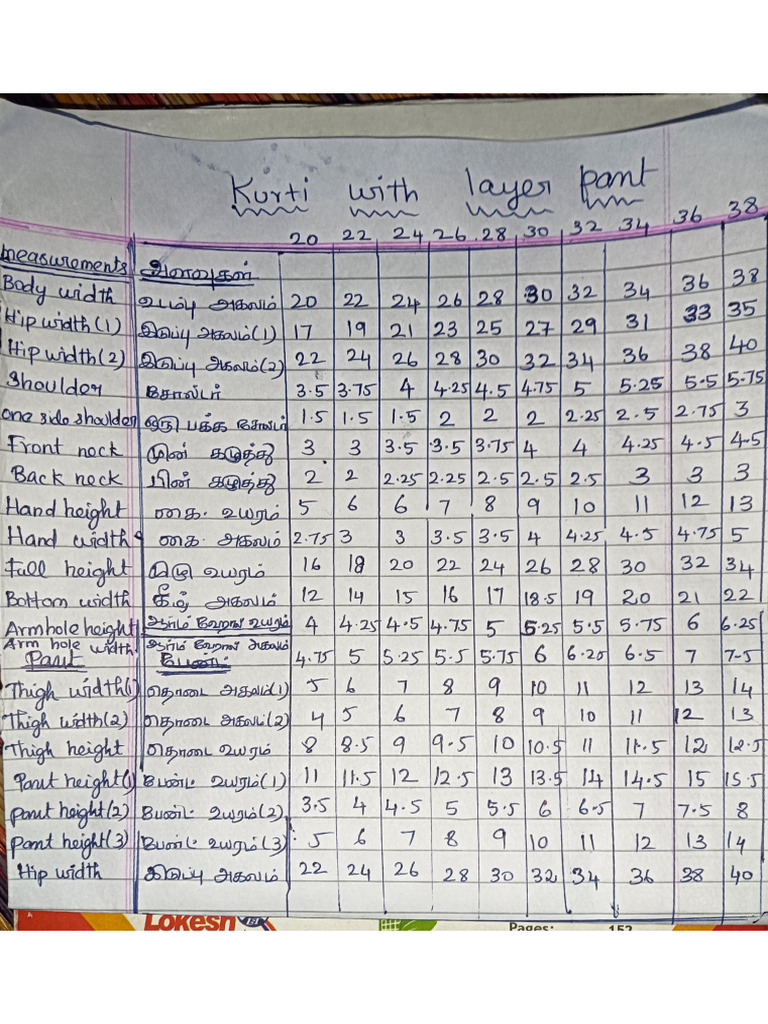 Kurti with layer pant
20 22 24 26 28 30 32 34 36 38
measurements அளவுகள்
Body width உடம்பு அகலம் 20 22 24 26 28 30 32 34 36 38
Hip width(1) இடுப்பு அகலம்(1) 17 19 21 23 25 27 29 31 33 35
Hip width(2) இடுப்பு அகலம்(2) 22 24 26 28 30 32 34 36 38 40
Shoulder சோல்டர் 3.5 3.75 4 4.25 4.5 4.75 5 5.25 5.5 5.75
one side shoulder ஒரு பக்க சோல்டர் 1.5 1.5 1.5 2 2 2 2.25 2.5 2.75 3
Front neck முன் கழுத்து 3 3 3.5 3.5 3.75 4 4 4.25 4.5 4.5
Back neck பின் கழுத்து 2 2 2.25 2.25 2.5 2.5 2.5 3 3 3
Hand height கை உயரம் 5 6 6 7 8 9 10 11 12 13
Hand width கை அகலம் 2.75 3 3 3.5 3.5 4 4.25 4.5 4.75 5
Full height முழு உயரம் 16 18 20 22 24 26 28 30 32 34
Bottom width கீழ் அகலம் 12 14 15 16 17 18.5 19 20 21 22
Armhole height ஆர்ம் ஹோல் உயரம் 4 4.25 4.5 4.75 5 5.25 5.5 5.75 6 6.25
Arm hole width ஆர்ம் ஹோல் அகலம் 4.75 5 5.25 5.5 5.75 6 6.25 6.5 7 7.5
Pant பேண்ட்
Thigh width(1) தொடை அகலம்(1) 5 6 7 8 9 10 11 12 13 14
Thigh width(2) தொடை அகலம்(2) 4 5 6 7 8 9 10 11 12 13
Thigh height தொடை உயரம் 8 8.5 9 9.5 10 10.5 11 11.5 12 12.5
Pant height(1) பேண்ட் உயரம்(1) 11 11.5 12 12.5 13 13.5 14 14.5 15 15.5
pant height(2) பேண்ட் உயரம்(2) 3.5 4 4.5 5 5.5 6 6.5 7 7.5 8
pant height(3) பேண்ட் உயரம்(3) 5 6 7 8 9 10 11 12 13 14
Hip width இடுப்பு அகலம் 22 24 26 28 30 32 34 36 38 40
Lokesh Pages: 152